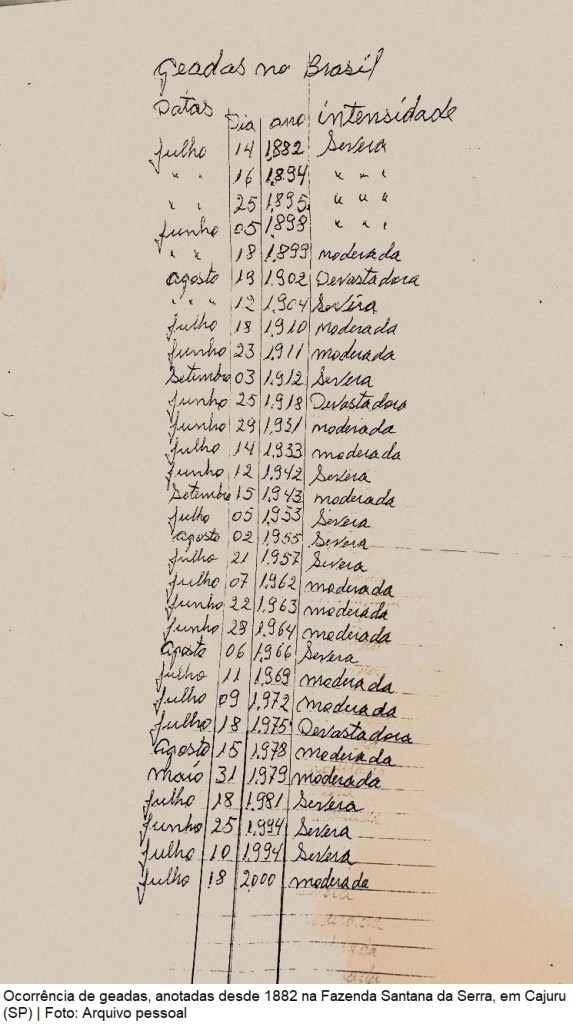 Geadas no Brasil
Datas Dia ano intensidade
julho 14 1,882 Severa
" " 16 1,894 " " "
" " 25 1,895 " " "
junho 05 1,898 " " "
" " 18 1,899 moderada
agosto 19 1,902 Devastadora
" " " 12 1,904 Severa
julho 18 1,910 moderada
junho 23 1,911 moderada
Setembro 03 1,912 Severa
junho 25 1,918 Devastadora
junho 29 1,931 moderada
julho 14 1,933 moderada
junho 12 1,942 Severa
Setembro 15 1,943 moderada
julho 05 1,953 Severa
agosto 02 1,955 Severa
julho 21 1,957 Severa
julho 07 1,962 moderada
junho 22 1,963 moderada
junho 28 1,964 moderada
Agosto 06 1,966 Severa
julho 11 1,969 moderada
julho 09 1,972 moderada
julho 18 1,975 Devastadora
agosto 15 1,978 moderada
maio 31 1,979 moderada
julho 18 1,981 Severa
junho 25 1,994 Severa
julho 10 1,994 Severa
julho 18 2,000 moderada
Ocorrência de geadas, anotadas desde 1882 na Fazenda Santana da Serra, em Cajuru
(SP) | Foto: Arquivo pessoal